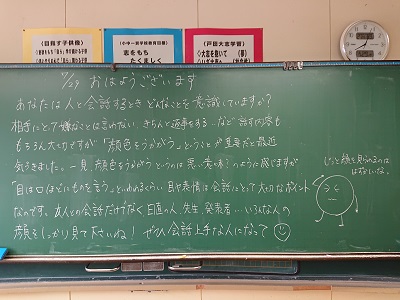 《目指す子供像》
《小中一貫学校教育目標》
志をもち
たくましく
《戸田大志学書》
◇大志を抱いて 《事》
1/29 おはようございます
あなたは人と会話するとき どんなことを意識していますか?
相手にとって嫌なことは言わない、きちんと返事をする…など 話す内容も
もちろん大切ですが「顔色をうかがう」ということが重要だと最近
気づきました。一見、顔色をうかがうというのは悪い意味?のように感じますが
「目は口ほどにものを言う」といわれるくらい 目や表情は会話にとって大切なポイント
なのです。友人との会話だけでなく 日直の人、先生、発表者…いろんな人の
顔をしっかり見て下さいね! ぜひ会話上手な人になって
じっと顔を見られるのは
はずかしいな。